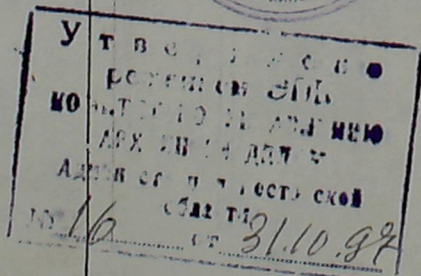 Утвержден●
решением ЭПК
комитета по управлению
архивным делом
Админ
области
№ 16 от 31.10.97